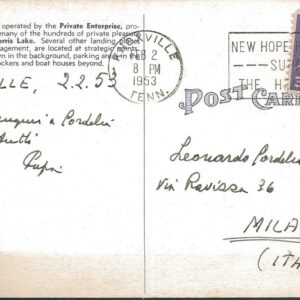 ed by the Private Enterprise, pro-
many of the hundreds of pleasure
orris Lake. Several other landing
agement, are located at strategic
own in the background, parking area in
ockers and boat houses beyond.
VILLE, 2.2.53
a Cordelia
tutti
Pupi
KNOXVILLE
FEB 2
8 PM
1953
TENN.
NEW HOPE
SU
THE H
POST CARD
Leonardo
via Ravizza 36
MILA
(ITA